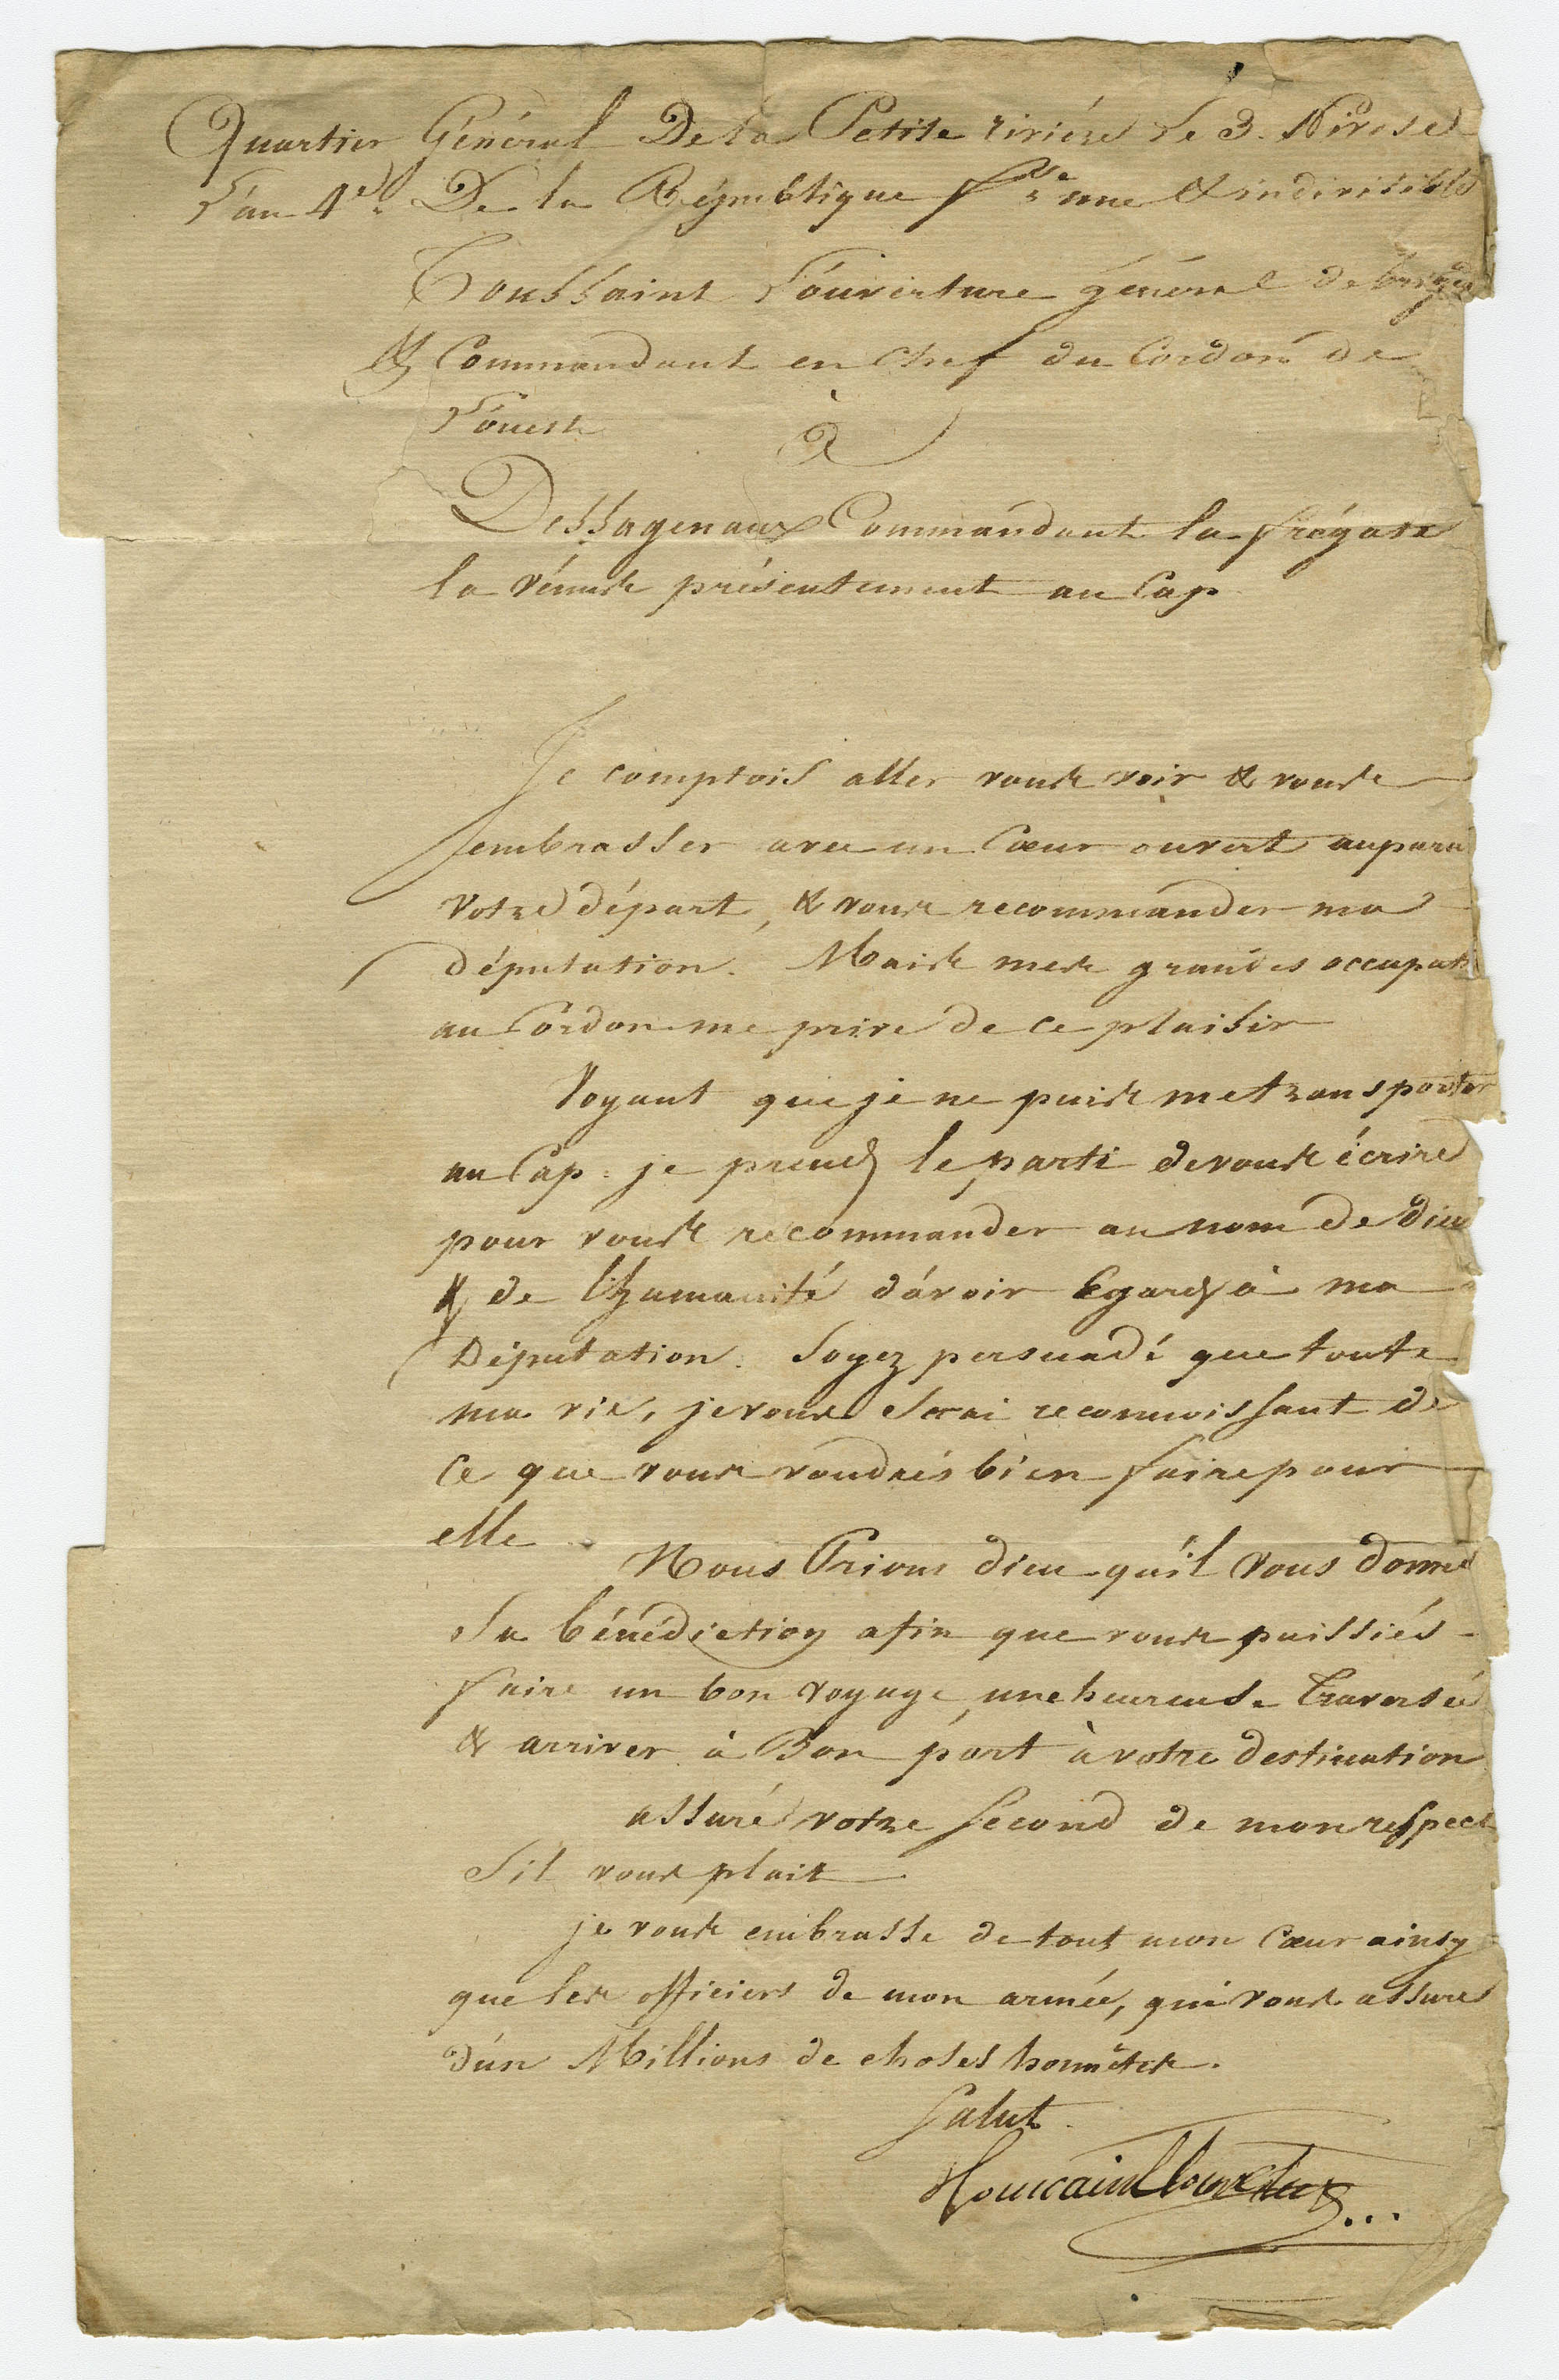 Quartier Général De la Petite rivière Le 3. Nivose
L'an 4e. De la République f^se une & indivisible
Toussaint Louverture général de brigde
& Commandant en Chef du Cordon de
L'ouest
à
Dessagenaux Commandant la frégate
la vénus présentement au Cap
Je comptois aller vous voir & vous
embrasser avec un Cœur ouvert aupara
Votre départ, & vous recommander ma
députation. Mais mes grandes occupati
au Cordon me prive de ce plaisir
Voyant que je ne puis me transporter
au Cap. je prends le parti de vous écrire
pour vous recommander au nom de dieu
& de l'humanité d'avoir Egards à ma
Députation. Soyez persuadé que toute
ma vie, je vous serai reconnoissant de
Ce que vous voudrés bien faire pour
elle
Nous Prions dieu qu'il vous donne
Sa bénédiction afin que vous puissiés
faire un bon voyage, une heureuse Traversée
& arriver à Bon port à votre destination
assuré votre second de mon respect
S'il vous plait
je vous embrasse de tout mon Cœur ainsy
que les officiers de mon armée, qui vous assure
d'un Millions de choses honnêtes.
Salut
Toussaint Louverture